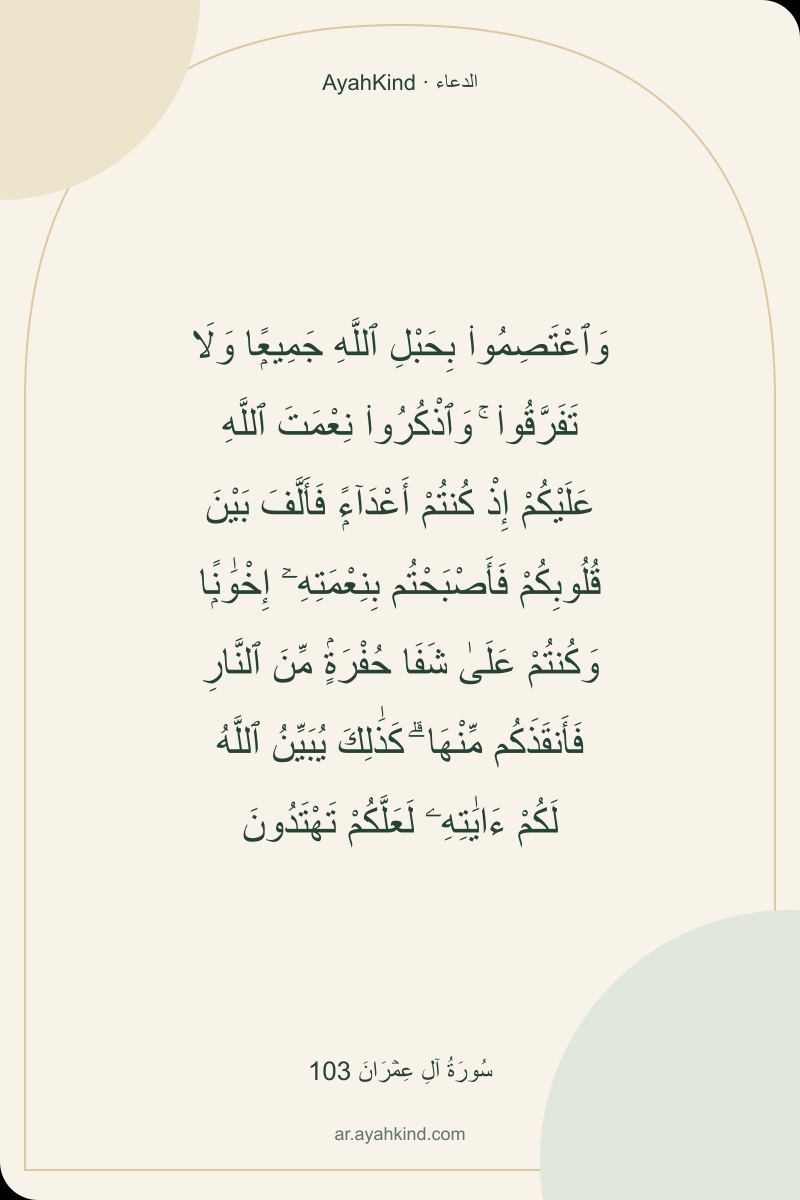 AyahKind · الدعاء
وَٱعْتَصِمُوا۟ بِحَبْلِ ٱللَّهِ جَمِيعًۭا وَلَا
تَفَرَّقُوا۟ ۚ وَٱذْكُرُوا۟ نِعْمَتَ ٱللَّهِ
عَلَيْكُمْ إِذْ كُنتُمْ أَعْدَآءًۭ فَأَلَّفَ بَيْنَ
قُلُوبِكُمْ فَأَصْبَحْتُم بِنِعْمَتِهِۦٓ إِخْوَٰنًۭا
وَكُنتُمْ عَلَىٰ شَفَا حُفْرَةٍۢ مِّنَ ٱلنَّارِ
فَأَنقَذَكُم مِّنْهَا ۗ كَذَٰلِكَ يُبَيِّنُ ٱللَّهُ
لَكُمْ ءَايَٰتِهِۦ لَعَلَّكُمْ تَهْتَدُونَ
سُورَةُ آلِ عِمۡرَانَ 103
ar.ayahkind.com